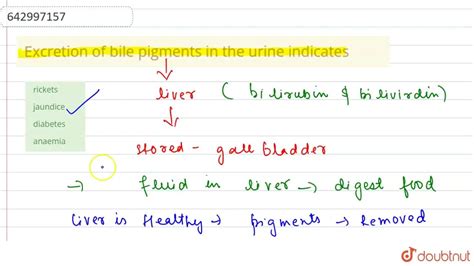 642997157
Excretion of bile pigments in the urine indicates
rickets
jaundice
diabetes
anaemia
liver ( bilirubin & bilivirdin)
stored - gall bladder
→ fluid in liver → digest food
Liver is Healthy → pigments → Removed
doubtnut